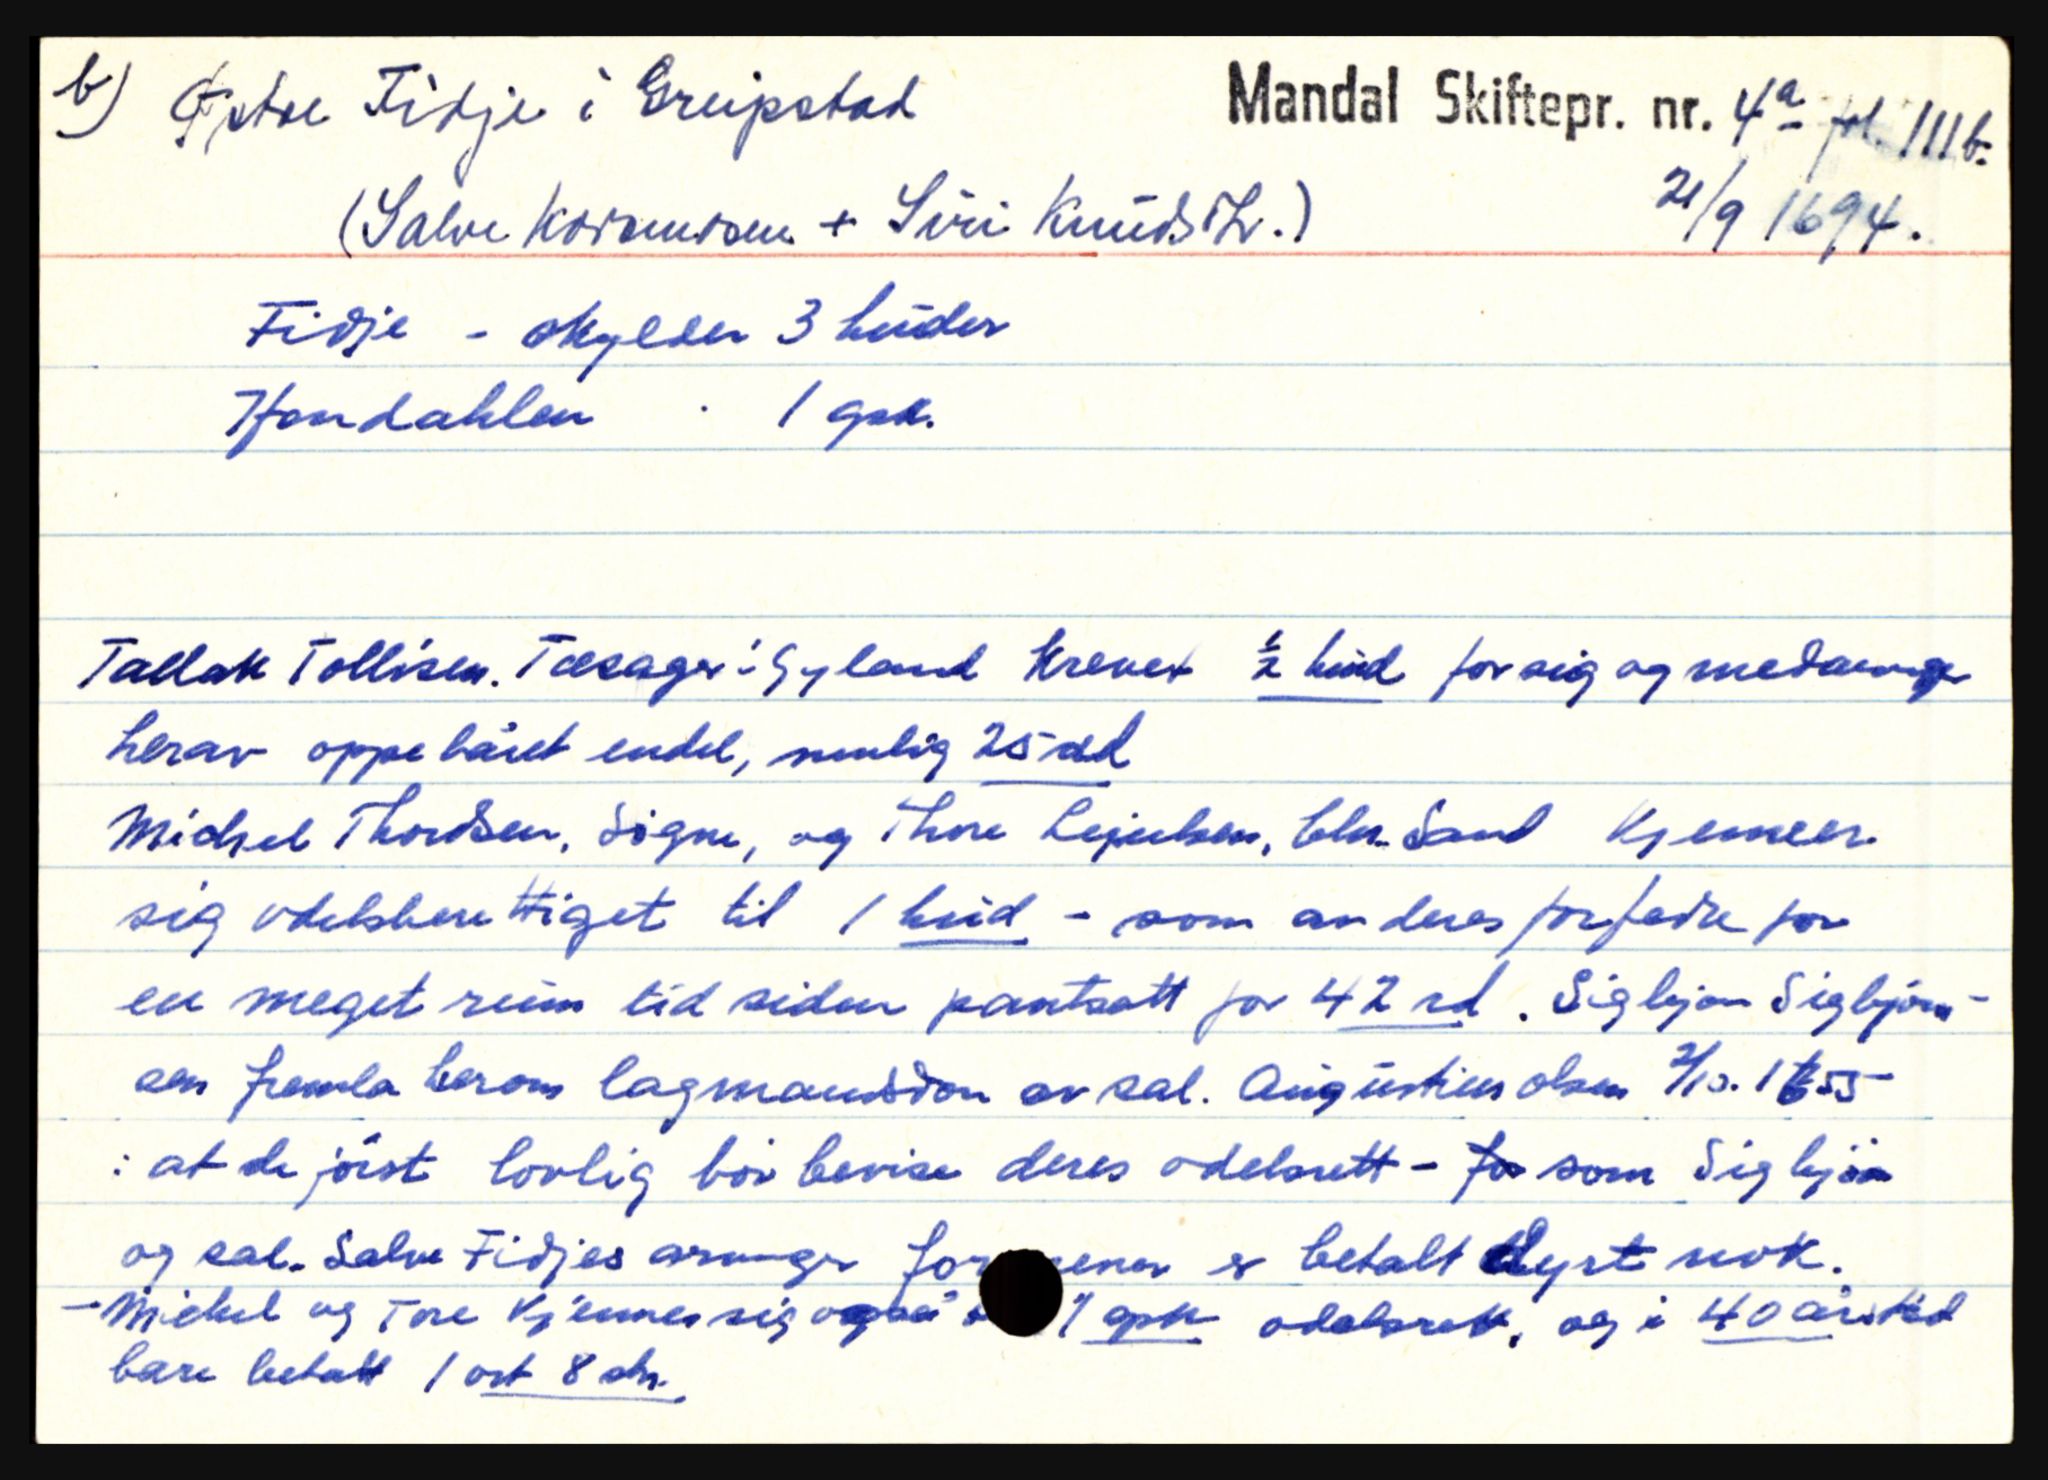 b) Østre Fidje i Greipstad Mandal Skiftepr. nr. 4a fol. 111b.
(Salve + Siri Knudsdtr.) 21/9 1694.
Fidje - skylder 3 huder
1 gsk.
Tallak Tollisen. i Gyland krever 1/2 hud for sig og medarvinger
herav oppebåret endel, nemlig 25 rd
Michel Thordsen, Søgne, og Thore Sand kjenner
sig odelsberettiget til 1 hud - som av deres forfedre for
en meget rum tid siden pantsatt for 42 rd. Sigbjørn Sigbjørn-
sen fremla herom lagmansdom av sal. Augustinus Olsen 2/10. 1655
: at de først lovlig bør bevise deres odelsrett - for som Sigbjørn
og sal. Salve Fidjes arvinger er betalt dyrt nok.
- Michel og Tore kjenner sig også 1 gsk odelsrett, og i 40 års tid
bare betalt 1 ort 8 sk.